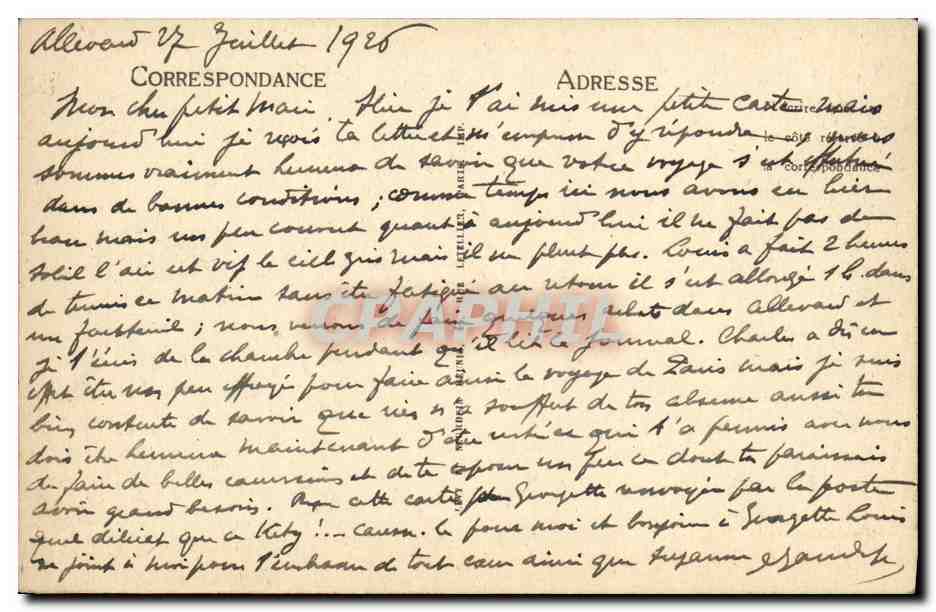 Allevard 27 Juillet 1926
CORRESPONDANCE ADRESSE
Mon cher petit Mari. Hier je t'ai mis une petite carte mais
aujourd'hui je reçois ta lettre et m'empresse d'y répondre nous
sommes vraiment heureux de savoir que votre voyage s'est effectué
dans de bonnes conditions ; comme temps ici nous avons eu hier
beau mais un peu couvert quant à aujourd'hui il ne fait pas de
soleil l'air est vif le ciel gris mais il ne pleut pas. Louis a fait 2 heures
de tennis ce matin sans être fatigué au retour il s'est allongé 1 h. dans
un fauteuil ; nous venons de faire quelques achats dans Allevard et
je t'écris de la chambre pendant qu'il lit le journal. Charles a dû en
effet être un peu effrayé pour faire ainsi le voyage de Paris mais je suis
bien contente de savoir que rien n'a souffert de ton absence aussi tu
dois être heureux maintenant d'être resté ce qui t'a permis avec nous
de faire de belles excursions et de te reposer un peu ce dont tu paraissais
avoir grand besoin. cette carte Georgette renvoyée par la poste
quel délice que ce Kety !... caresse le pour moi et bonjour à Georgette Louis
se joint à moi pour t'embrasser de tout cœur ainsi que Suzanne
CRAPHIL